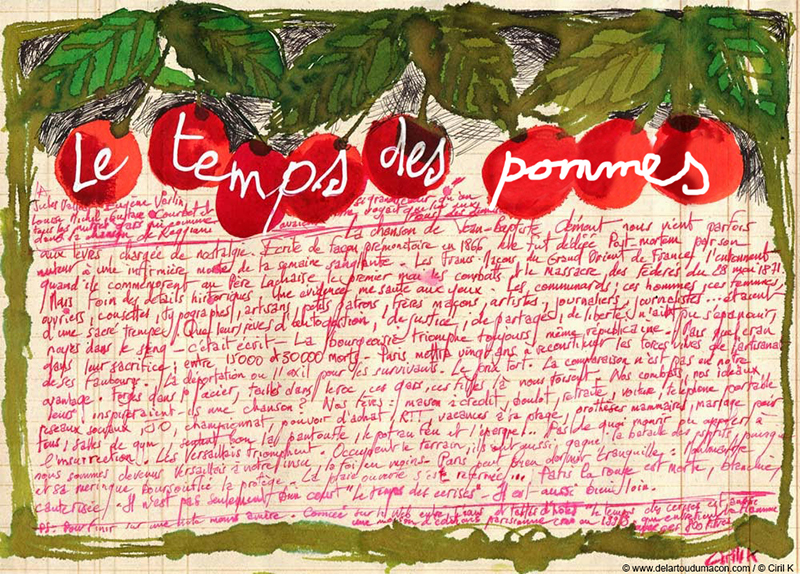 Le temps des pommes
Jules Vallès, Eugène Varlin
Louise Michel, Gustave Courbet et
tous les
dans la chanson de Reggiani
La chanson de Jean-Baptiste Clément nous vient parfois
aux lèvres chargée de nostalgie. Ecrite de façon prémonitoire en 1866 elle fut dédiée Post-mortem par son
auteur à une infirmière morte de la semaine sanglante. Les Frans-Maçons du Grand Orient de France, l'entonnent
quand ils commémorent au Père Lachaise le premier mai les combats et le massacre des fédérés du 28 mai 1871.
Mais foin des détails historiques. Une évidence me saute aux yeux. Les communards, ces hommes, ces femmes,
ouvriers, cousettes, typographes, artisans, petits patrons, frères maçons, artistes, journaliers, journalistes... étaient
d'une sacré trempe. Quel leur rêves d'autogestion, de justice, de partages, de libertés n'ait pu s'épanouir,
noyés dans le sang - c'était écrit - La bourgeoisie triomphe toujours, même républicaine. Mais quel cran
dans leur sacrifice, entre 15000 et 30000 morts. Paris mettra vingt ans à reconstituer les forces vives de l'artisanat
de ses faubourgs. La déportation ou l'exil pour les survivants. Le prix fort. La comparaison n'est pas en notre
avantage. Forgés dans l'acier, taillés dans le roc, ces gars, ces filles là nous toisent. Nos combats, nos idéaux,
leurs inspireraient-ils une chanson? Nos rêves: maison à crédit, boulot, retraite, voiture, téléphone portable
réseaux sociaux, championnat, pouvoir d'achat, RTT, vacances à la plage, prothèses mammaires, mariage pour
tous, salles de gym, bon la pantoufle, le pot au feu et l'épargne... Pas de quoi mourir ou appeler à
l'insurrection. Les Versaillais triomphent. Occupant le terrain, ils ont aussi gagné la bataille des esprits, puisque
nous sommes devenus Versaillais à notre insu, la foi en moins. Paris peut bien dormir tranquille:
et sa meringue boursouflée la protège. La plaie ouverte s'est refermée... Paris la rouge est morte, blanchie,
cautérisée. Il n'est pas seulement bien court "Le temps des cerises". Il est aussi bien loin.
PS. Pour finir sur une note moins amère. le web entre et tartes d'hôtes, le temps des cerises est aussi
une maison d'éditions parisienne créée en 1993
Ciril K
© www.delartoudumacon.com / © Ciril K